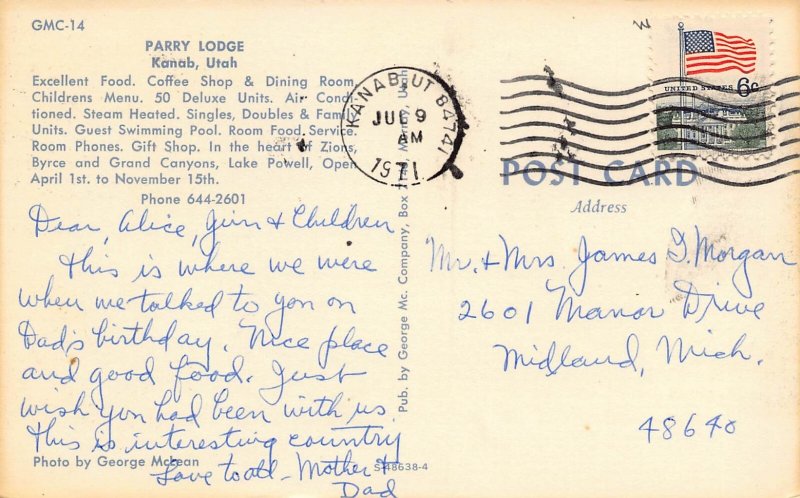 GMC-14
PARRY LODGE
Kanab, Utah
Excellent Food. Coffee Shop & Dining Room
Childrens Menu. 50 Deluxe Units. Air Condi-
tioned. Steam Heated. Singles, Doubles & Family
Units. Guest Swimming Pool. Room Food Service,
Room Phones. Gift Shop. In the heart of Zions,
Byrce and Grand Canyons, Lake Powell, Open
April 1st. to November 15th.
Phone 644-2601
Dear, Alice, Jim & Children
This is where we were
when we talked to you on
Dad's birthday. Nice place
and good food. Just
wish you had been with us.
This is interesting country
Love to all - Mother &
Dad
Photo by George McLean
S-48638-4
Pub. by George Mc. Company, Box Murray, Utah
KANAB, UT 84741
JUL 9
AM
1971
UNITED STATES 6c
POST CARD
Address
Mr. & Mrs. James G. Morgan
2601 Manor Drive
Midland, Mich.
48640